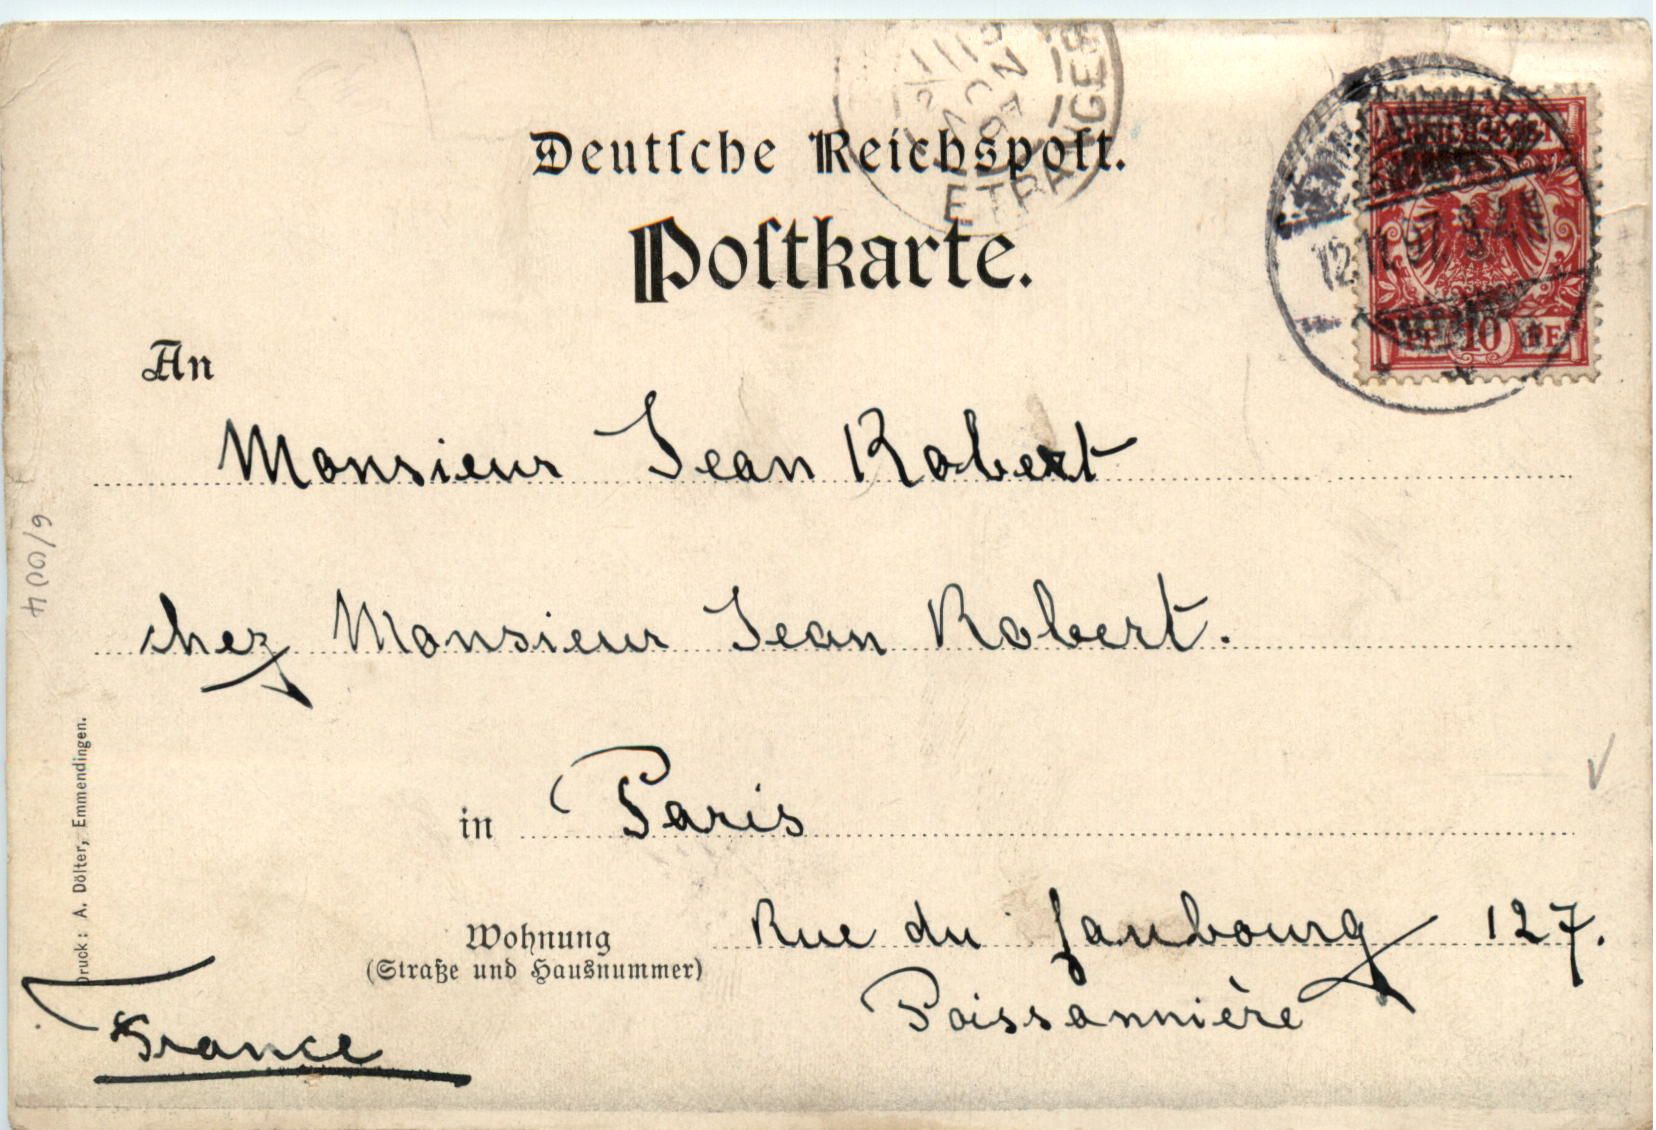 ETRANGER
Deutsche Reichspost.
Postkarte.
REICHSPOST
12.11.97. 3-4N
PF 10 PF
An
Monsieur Jean Robert
chez Monsieur Jean Robert.
in Paris
Wohnung
(Straße und Hausnummer)
Rue du faubourg 127.
Poissonnière
France
Druck: A. Dölter, Emmendingen.
6/004